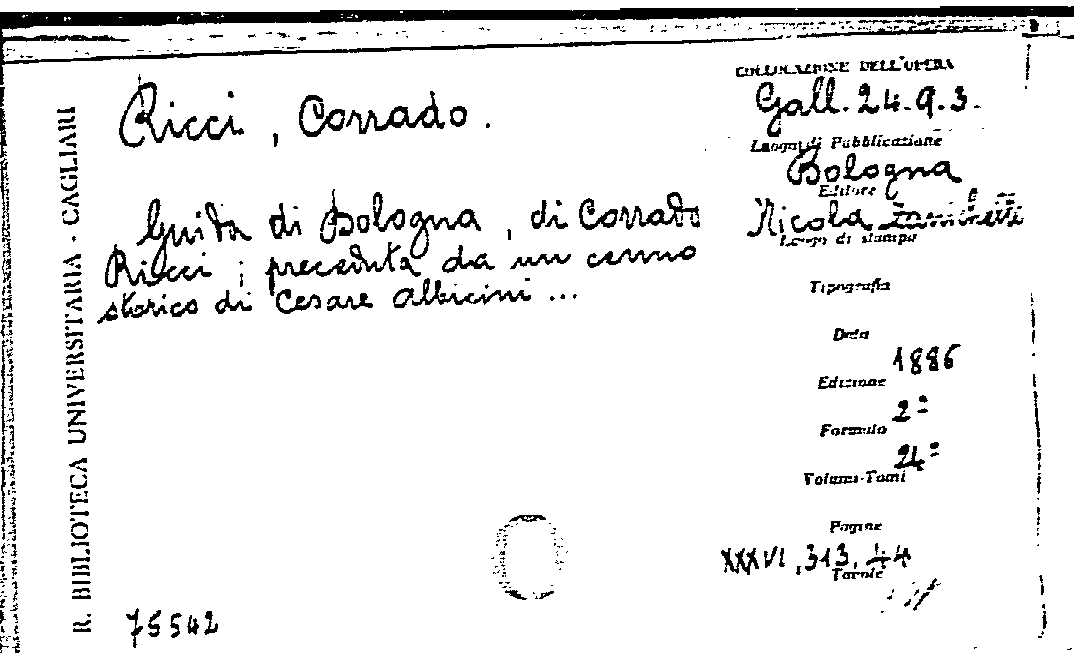 R. BIBLIOTECA UNIVERSITARIA - CAGLIARI
Ricci, Corrado.
Guida di Bologna, di Corrado
Ricci; preceduta da un cenno
storico di Cesare Albicini ...
75542
COLLOCAZIONE DELL'OPERA
Gall. 24.9.3.
Luogo di Pubblicazione
Bologna
Editore
Nicola Zanichelli
Luogo di stampa
Tipografia
Data
1886
Edizione
2ª
Formato
24º
Volumi-Tomi
Pagine
XXXVI, 313, 44
Tavole